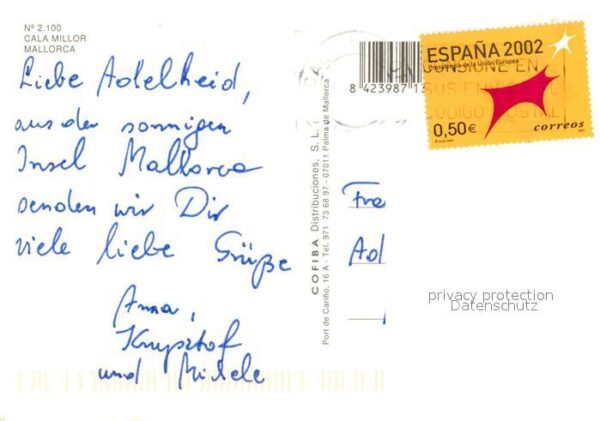 Nº 2.100
CALA MILLOR
MALLORCA
Liebe Adelheid,
aus der sonnigen
Insel Mallorca
senden wir Dir
viele liebe Grüße
Anna,
Krzysztof
und Michele
COFIBA Distribuciones, S. L.
Port de Cariño, 16 A - Tel. 971 73 68 97 - 07011 Palma de Mallorca
8 423987 1
ESPAÑA 2002
Presidencia de la Unión Europea
CONSIGNE EN
SUS ENVIOS
CODIGO POSTAL
0,50€
correos
Fra
Ad
privacy protection
Datenschutz